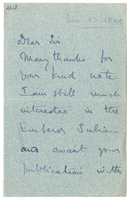 Dear Sir
Many thanks for
your kind note.
I am still much
interested in the
Emperor Julian
and await your
publication with